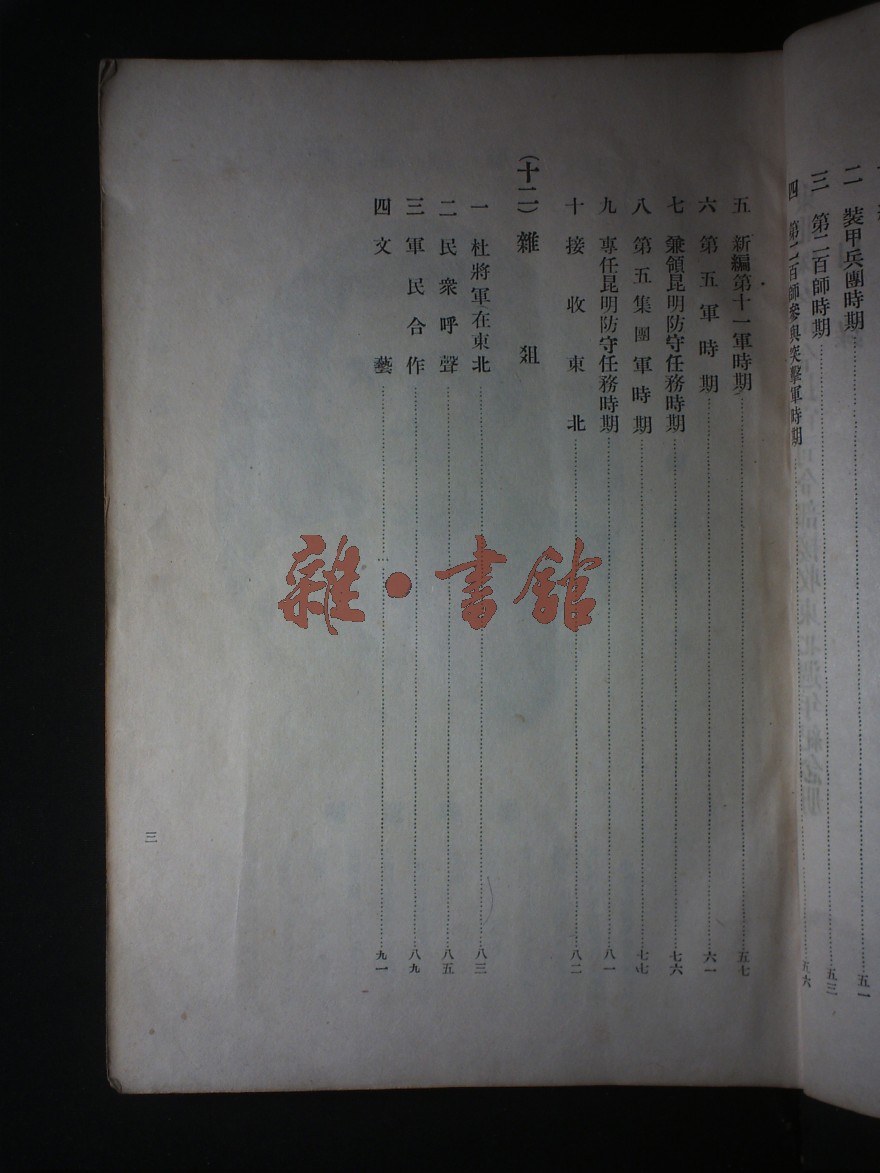 二 裝甲兵團時期 五一
三 第二百師時期 五三
四 第二百師參與突擊軍時期 五六
五 新編第十一軍時期 五七
六 第五軍時期 六一
七 兼領昆明防守任務時期 七六
八 第五集團軍時期 七七
九 專任昆明防守任務時期 八一
十 接收東北 八二
(十二) 雜俎
一 杜將軍在東北 八三
二 民衆呼聲 八五
三 軍民合作 八九
四 文藝 九一
三
雜·書館